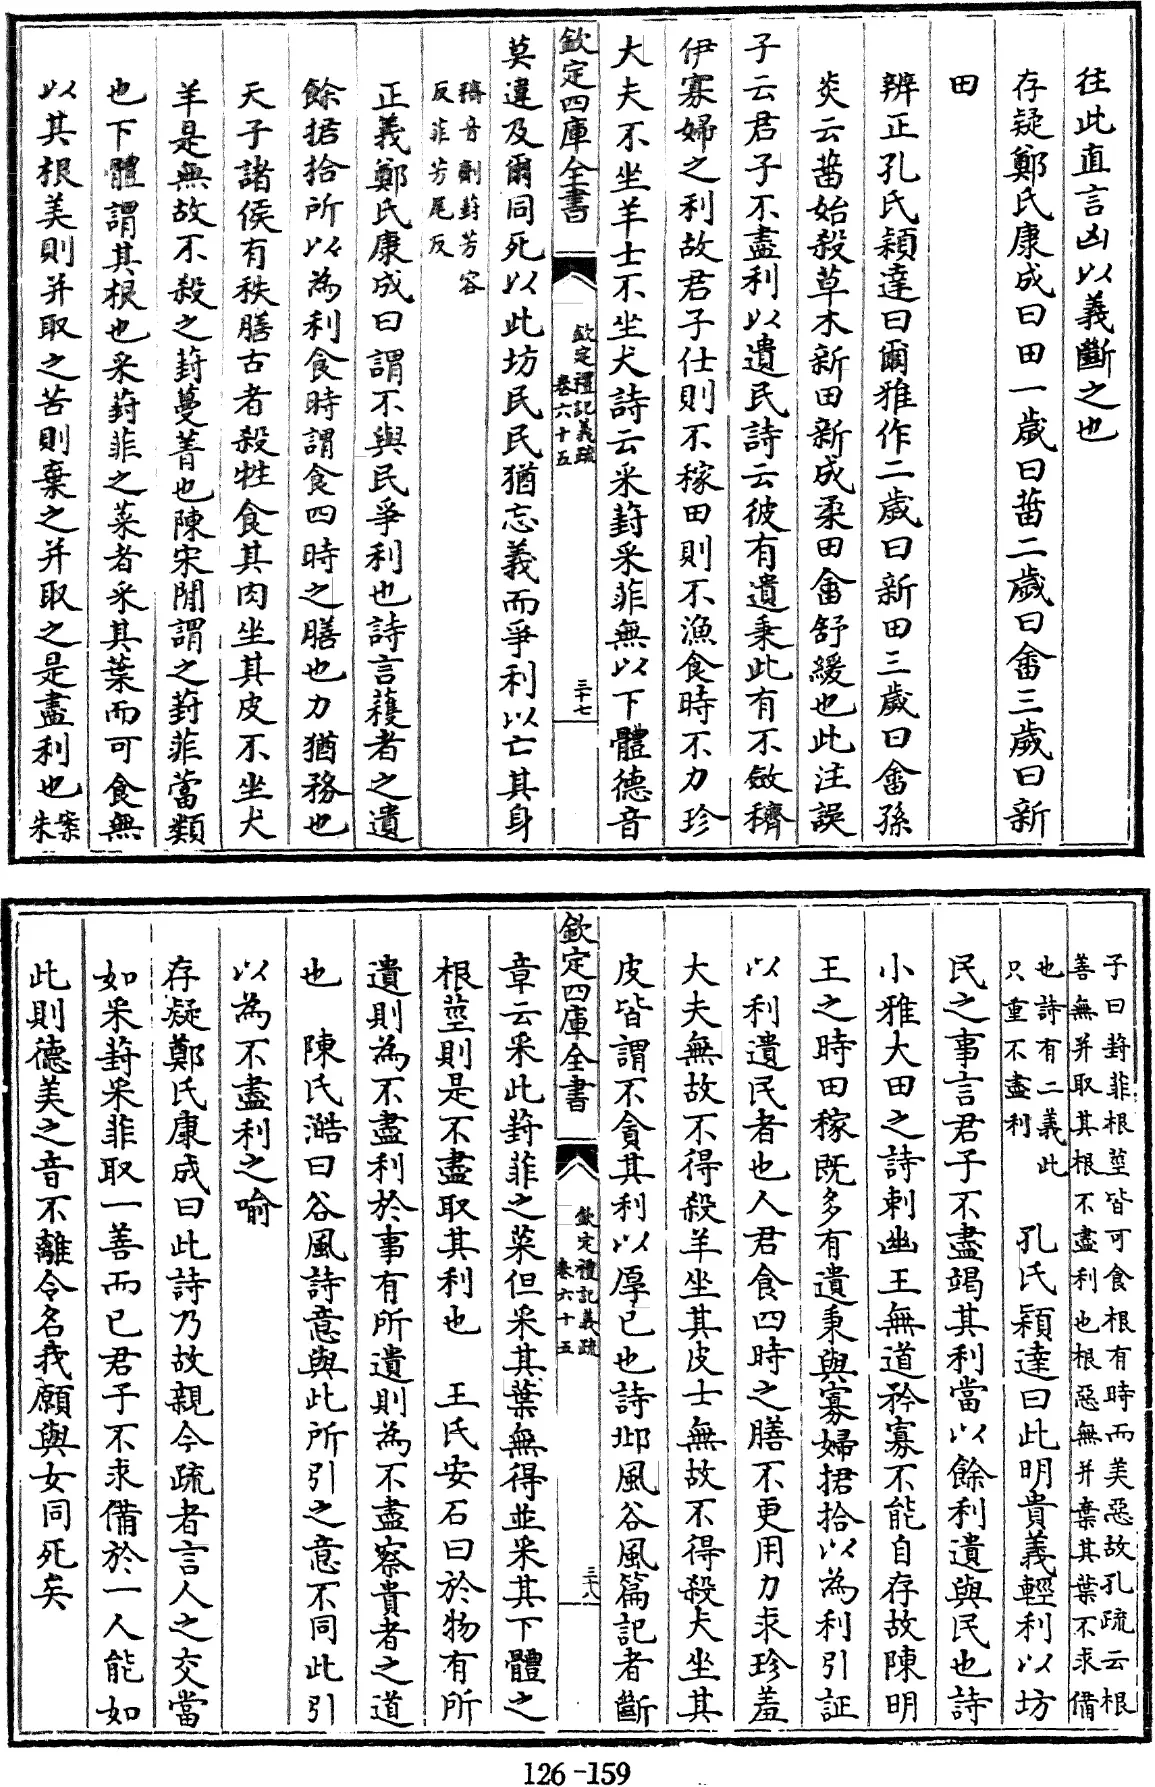 往此直言凶以義斷之也
存疑鄭氏康成曰田一歲曰菑二歲曰畬三歲曰新
田
辨正孔氏穎達曰爾雅作二歲曰新田三歲曰畬孫
炎云菑始殺草木新田新成柔田畬舒緩也此注誤
子云君子不盡利以遺民詩云彼有遺秉此有不斂穧
伊寡婦之利故君子仕則不稼田則不漁食時不力珍
大夫不坐羊士不坐犬詩云采葑采菲無以下體德音
欽定四庫全書
欽定禮記義疏
卷六十五
三十七
莫違及爾同死以此坊民民猶忘義而爭利以亡其身
穧音劑葑芳容
反菲芳尾反
正義鄭氏康成曰謂不與民爭利也詩言穫者之遺
餘捃拾所以為利食時謂食四時之膳也力猶務也
天子諸侯有秩膳古者殺牲食其肉坐其皮不坐犬
羊是無故不殺之葑蔓菁也陳宋閒謂之葑菲葍類
也下體謂其根也采葑菲之菜者采其葉而可食無
以其根美則并取之苦則棄之并取之是盡利也案
朱
子曰葑菲根莖皆可食根有時而美惡故孔疏云根
善無并取其根不盡利也根惡無并棄其葉不求備
也詩有二義此
只重不盡利
孔氏穎達曰此明貴義輕利以坊
民之事言君子不盡竭其利當以餘利遺與民也詩
小雅大田之詩刺幽王無道矜寡不能自存故陳明
王之時田稼既多有遺秉與寡婦捃拾以為利引証
以利遺民者也人君食四時之膳不更用力求珍羞
大夫無故不得殺羊坐其皮士無故不得殺犬坐其
皮皆謂不貪其利以厚己也詩邶風谷風篇記者斷
欽定四庫全書
欽定禮記義疏
卷六十五
三十八
章云采此葑菲之菜但采其葉無得並采其下體之
根莖則是不盡取其利也 王氏安石曰於物有所
遺則為不盡利於事有所遺則為不盡察貴者之道
也 陳氏澔曰谷風詩意與此所引之意不同此引
以為不盡利之喻
存疑鄭氏康成曰此詩乃故親今疏者言人之交當
如采葑采菲取一善而已君子不求備於一人能如
此則德美之音不離令名我願與女同死矣
126-159